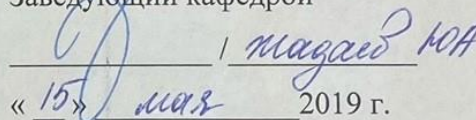 Заведующий кафедрой
/ Жадаев ЮА
« 15 » мая 2019 г.